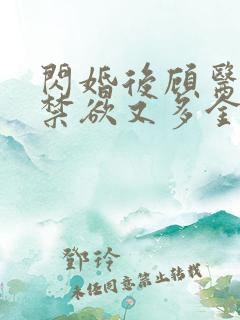 閃婚後顾醫
禁欲又多金
鄧玲
未任同意禁止转载